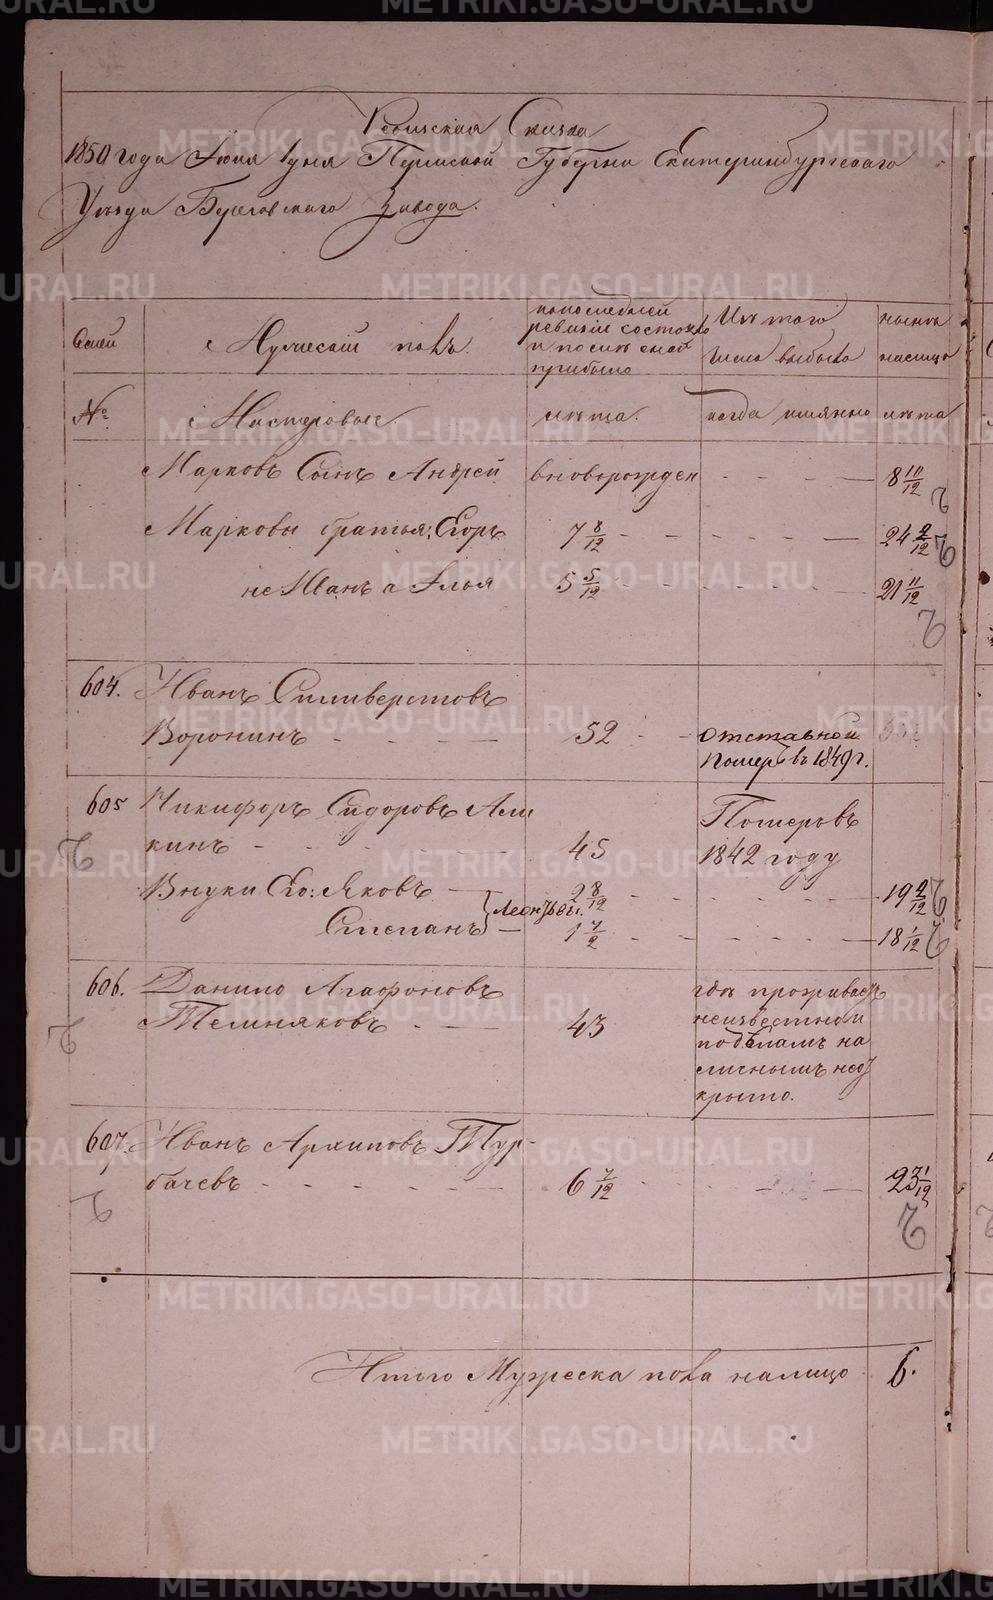 Ревизская Сказка
1850 года Июня 1 дня Пермской Губерни Екатеринбургскаго
Уезда Березовскаго Завода.
Семей
Мужеской полъ.
попоследней
ревизіи состояло
и после оной
прибыло
Изъ того
числа выбыло
ныне
налицо
№
Мастеровые.
лета.
когда имянно
лета
Марковъ Сынъ Андрей вноворожден 8 11/12
Марковы братья: Егоръ 7 8/12 24 2/12
не Иванъ а Илья 5 5/12 21 11/12
604. Иванъ Силиверстовъ
Воронинъ 52 отставной
Померъ въ 1849 г.
605 Никифоръ Сидоровъ Али
кинъ 45
Померъ въ
1842 году
Внуки Его: Яковъ 2 8/12 19 2/12
Леонтьевы.
Степанъ 1 7/12 18 1/12
606. Данило Агафоновъ
Темняковъ 43
где проживаетъ
неизвестно и
поделамъ на
личнымъ неот
крыто.
607. Иванъ Архиповъ Тур-
бачевъ 6 7/12 23 1/12
Итого Мужеска пола налицо 6.
METRIKI.GASO-URAL.RU